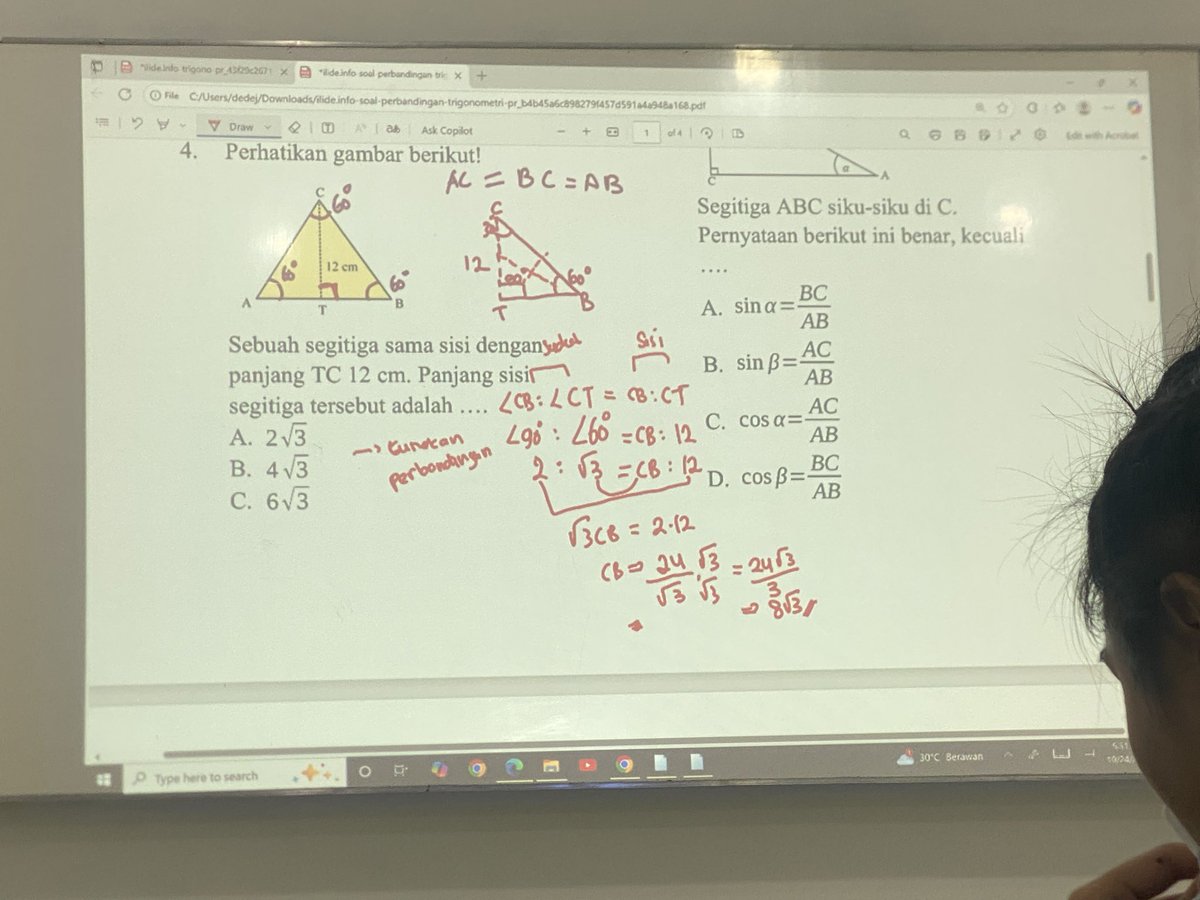 *ilide.info trigono pr_43f29c2671
*ilide.info soal perbandingan trig
File C:/Users/dedej/Downloads/ilide.info-soal-perbandingan-trigonometri-pr_b4b45a6c898279f457d591a4a948a168.pdf
Draw Ask Copilot 1 of 4 Edit with Acrobat
4. Perhatikan gambar berikut!
AC = BC = AB
C 60°
60° 12 cm 60°
A T B
C
12 60°
T B
Sebuah segitiga sama sisi dengan
panjang TC 12 cm. Panjang sisi
segitiga tersebut adalah ....
A. 2√3
B. 4√3
C. 6√3
→ Gunakan
perbandingan
sudut sisi
∠CB : ∠CT = CB : CT
∠90° : ∠60° = CB : 12
2 : √3 = CB : 12
√3CB = 2·12
CB ⇒ 24/√3 · √3/√3 = 24√3/3
⇒ 8√3//
C α A
Segitiga ABC siku-siku di C.
Pernyataan berikut ini benar, kecuali
....
A. sin α = BC/AB
B. sin β = AC/AB
C. cos α = AC/AB
D. cos β = BC/AB
Type here to search
30°C Berawan